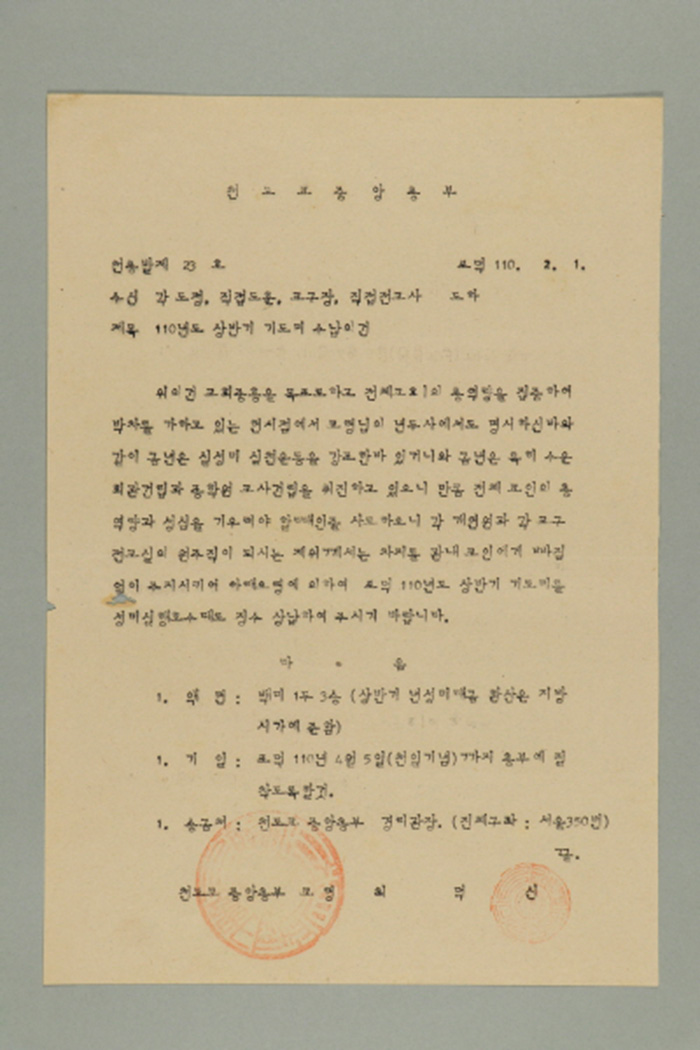 천 도 교 중 앙 총 부
천총발제 23 호 포덕 110. 2. 1.
수신 각 도정, 직접도훈, 교구장, 직접전교사 도하
제목 110년도 상반기 기도미 수납의건
위의건 교회중흥을 목표로하고 전체교회의 총역량을 집중하여
박차를 가하고 있는 현시점에서 교령님의 년두사에서도 명시하신바와
같이 금년은 실성미 실천운동을 강조한바 있거니와 금년은 특히 수운
회관건립과 종학원 교사건립을 추진하고 있으니 만큼 전체 교인의 총
역량과 성심을 기우려야 할때인줄 사료하오니 각 계연원과 각 교구
전교실의 원주직이 되시는 제위께서는 차지를 관내 교인에게 빠짐
없이 주지시키어 아래요령에 의하여 포덕 110년도 상반기 기도미를
성미실행호수대로 징수 상납하여 주시기 바랍니다.
다 음
1. 액 면 : 백미 1두 3승 (상반기 년성미대금 환산은 지방
시가에 준함)
1. 기 일 : 포덕 110년 4월 5일(천일기념)까지 총부에 필
착도록할것.
1. 송금처 : 천도교 중앙총부 경리관장. (진체구좌 : 서울350번)
끝.
천도교 중앙총부 교 령 최 덕 신